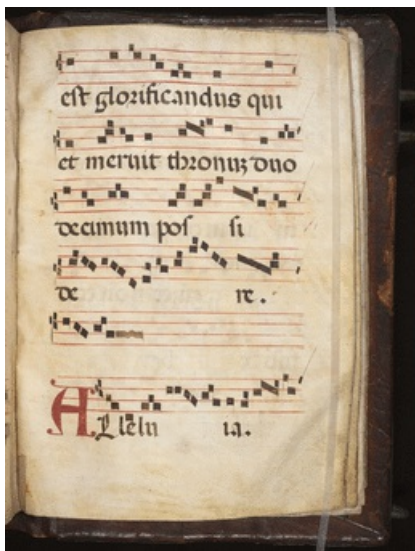 est glorificandus qui
et meruit thronuz duo
decimum pos si
de re.
Alleluia.